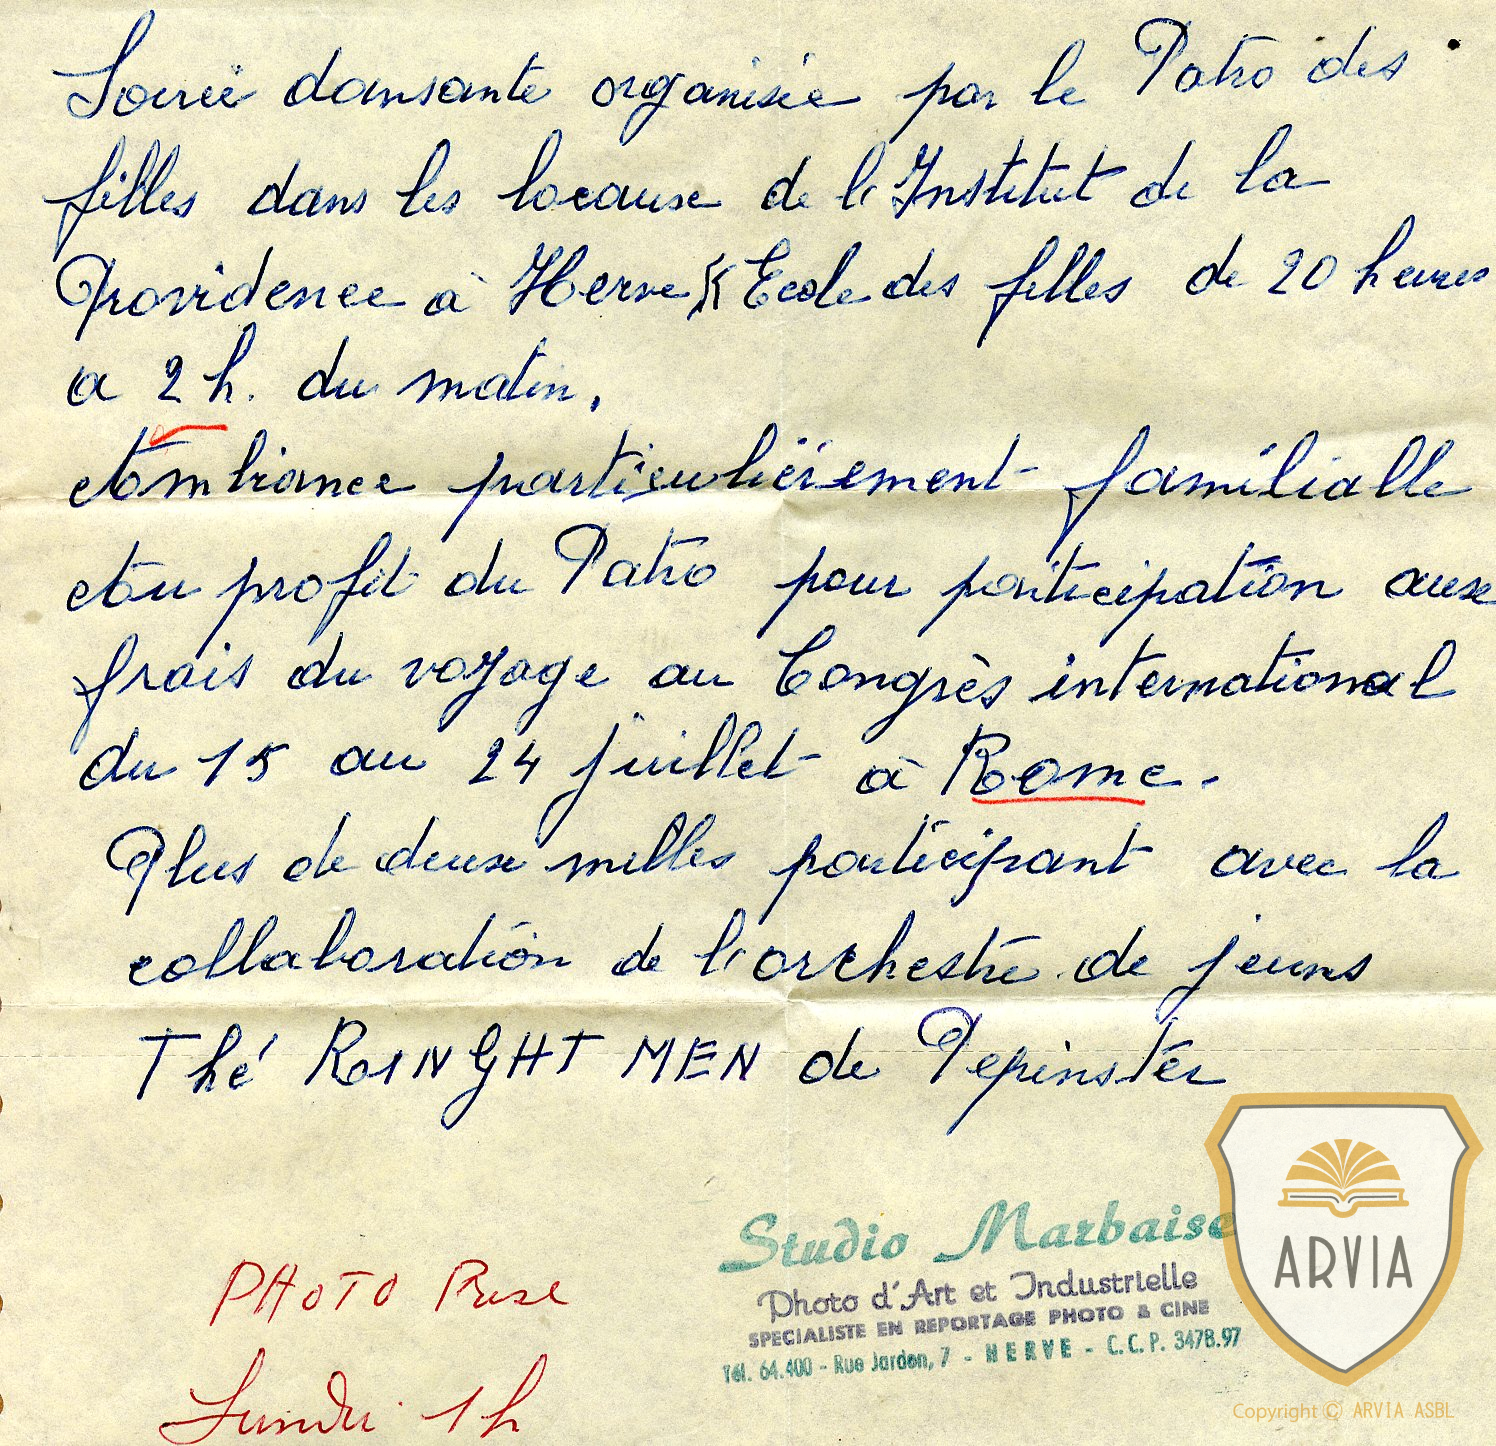 Soirée dansante organisée par le Patro des
filles dans les locause de l'Institut de la
Providence à Herve Ecole des filles de 20 heures
a 2 h. du matin.
Ambiance particulièrement familialle
Au profit du Patro pour participation aux
frais du voyage au Congrès international
du 15 au 24 juillet à Rome.
Plus de deux milles participant avec la
collaboration de l'orchestre de jeuns
Thé RAINGHT MEN de Pepinster
PHOTO Prise
Lundi 1 h
Studio Marbaise
Photo d'Art et Industrielle
SPECIALISTE EN REPORTAGE PHOTO & CINE
Tél. 64.400 - Rue Jardon, 7 - HERVE - C.C.P. 3478.97
ARVIA
Copyright © ARVIA ASBL